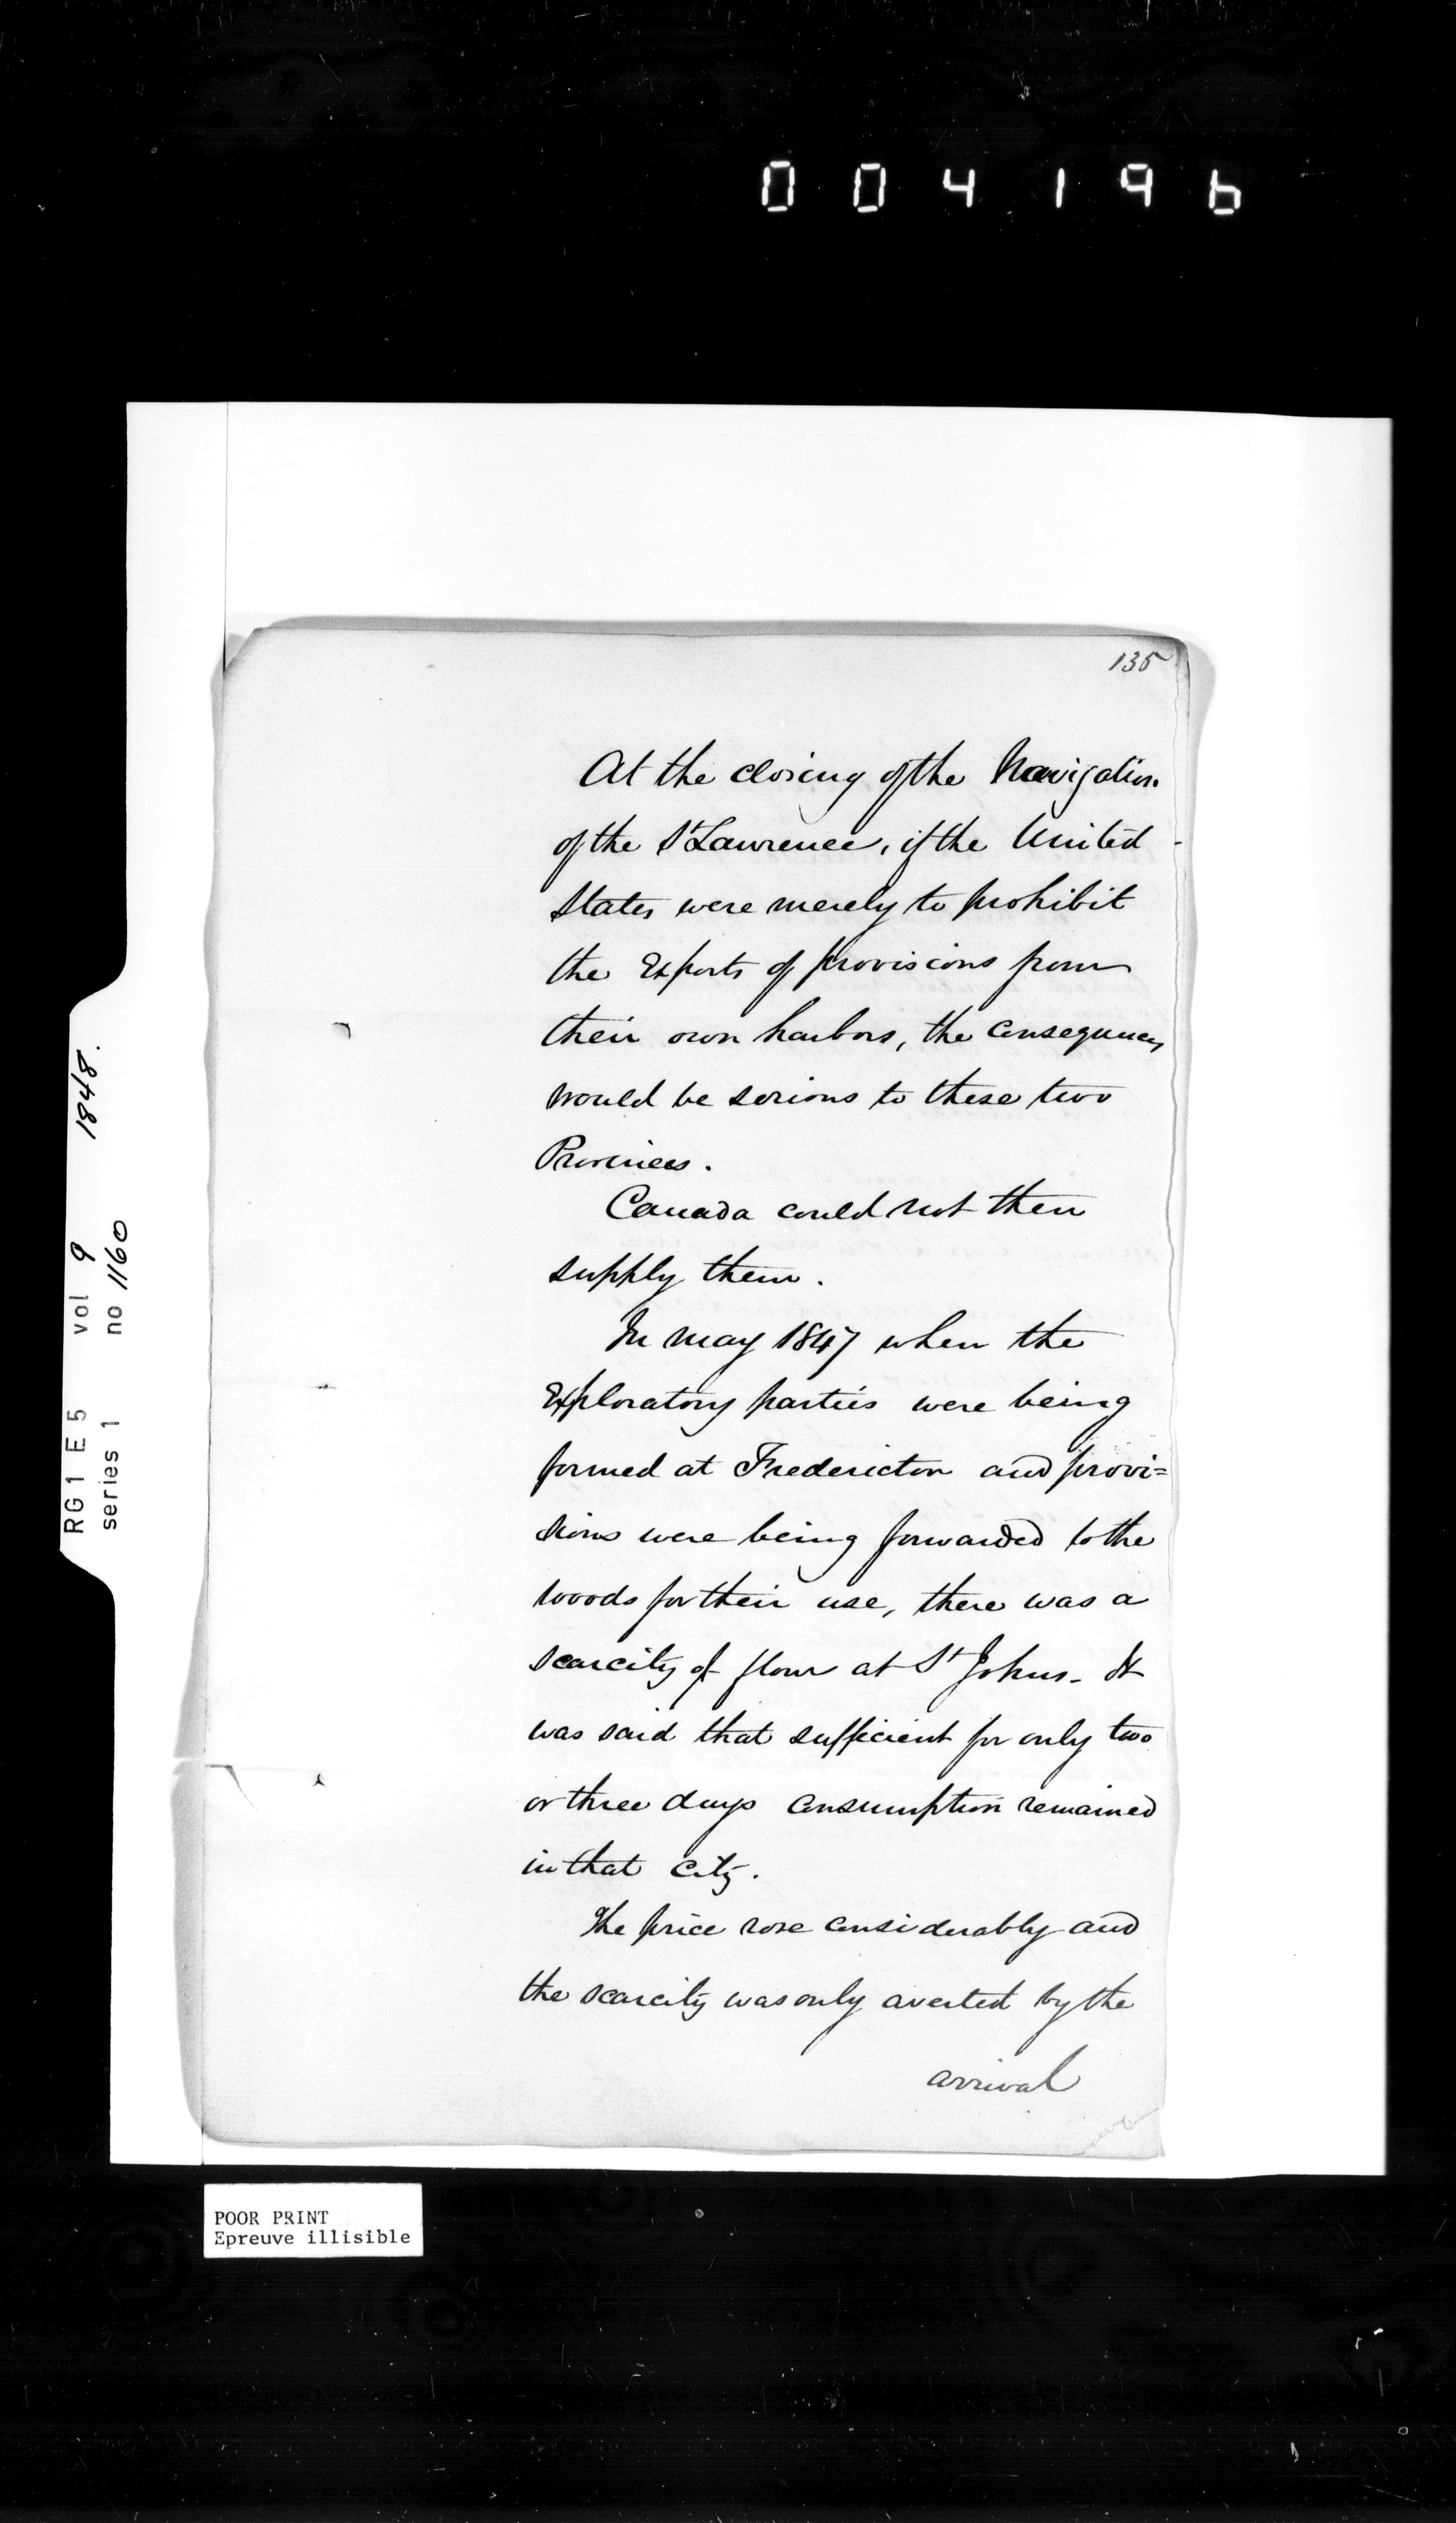 004196
135
At the closing of the Navigation
of the St Lawrence, if the United
States were merely to prohibit
the Exports of provisions from
their own harbors, the consequences
would be serious to these two
Provinces.
Canada could not then
supply them.
In may 1847 when the
Exploratory parties were being
formed at Fredericton and provi=
sions were being forwarded to the
woods for their use, there was a
scarcity of flour at St Johns. It
was said that sufficient for only two
or three days consumption remained
in that City.
The price rose considerably and
the scarcity was only averted by the
arrival
RG1 E5 vol 9 1848.
series 1 no 1160
POOR PRINT
Epreuve illisible